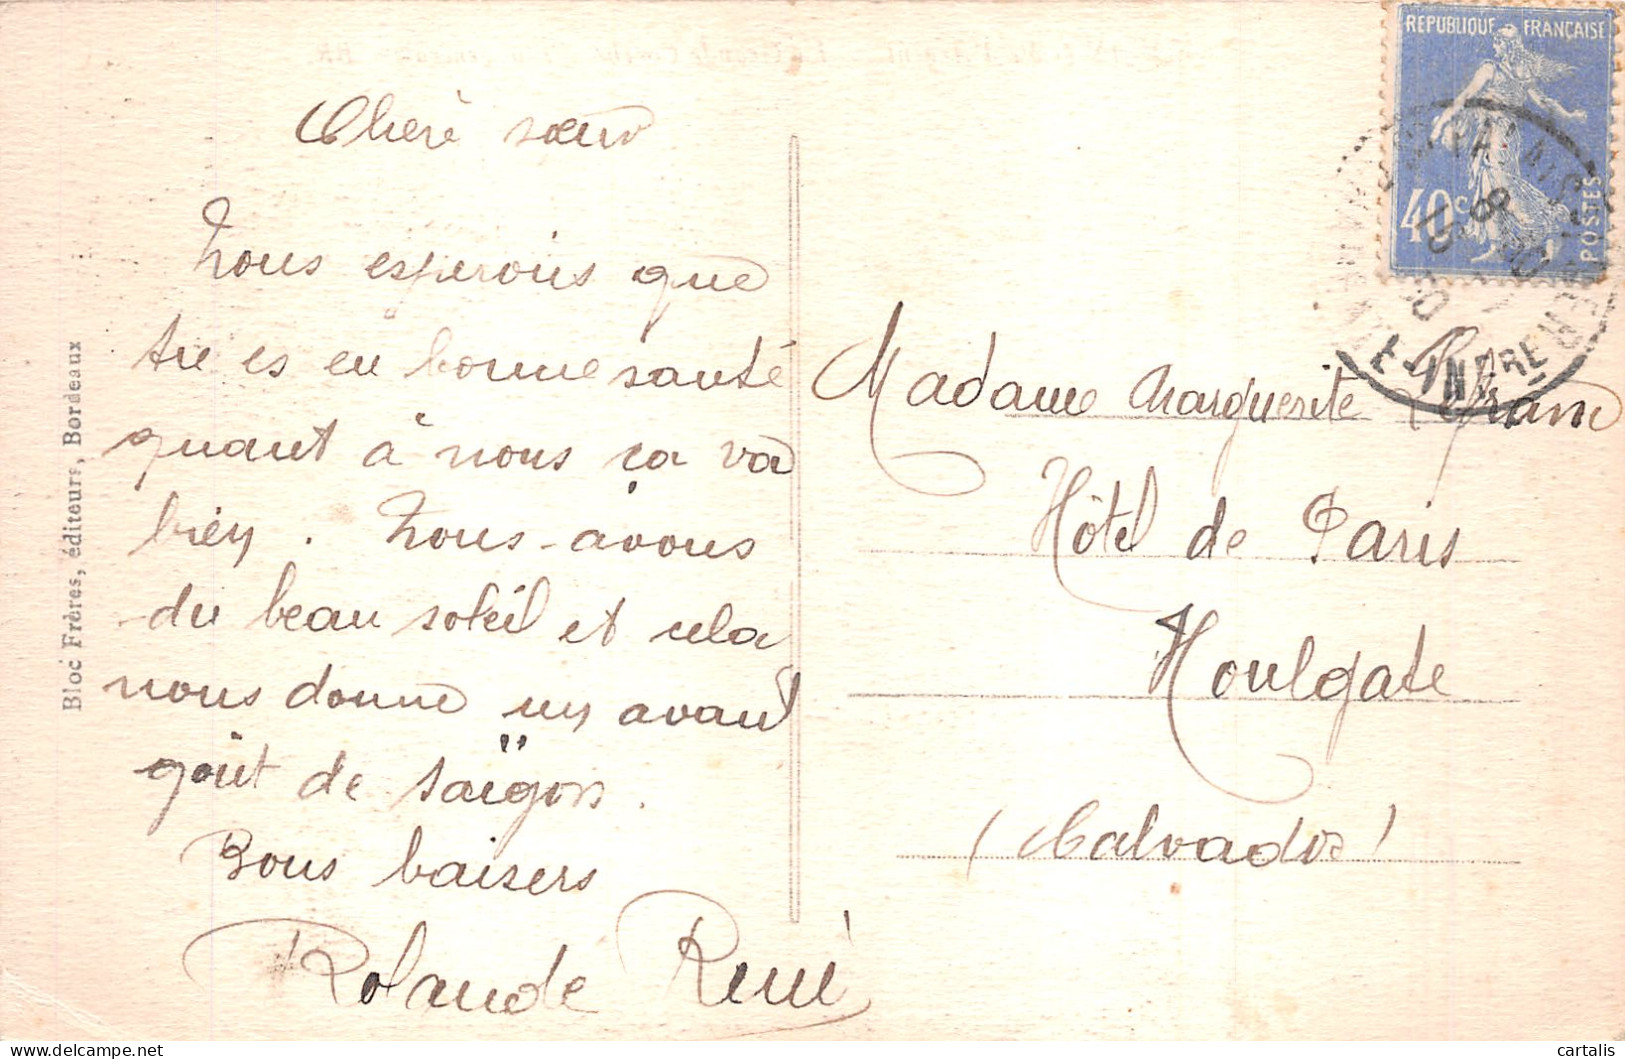 Chère sœur
Nous esperons que
tu es en bonne santé
quant à nous ça va
bien. Nous avons
du beau soleil et cela
nous donne un avant
goût de Saïgon.
Bons baisers
Rolande René
Bloc Frères, éditeurs, Bordeaux
REPUBLIQUE FRANÇAISE
40c
POSTES
Madame Marguerite
Hôtel de Paris
Houlgate
(Calvados)
cartalis